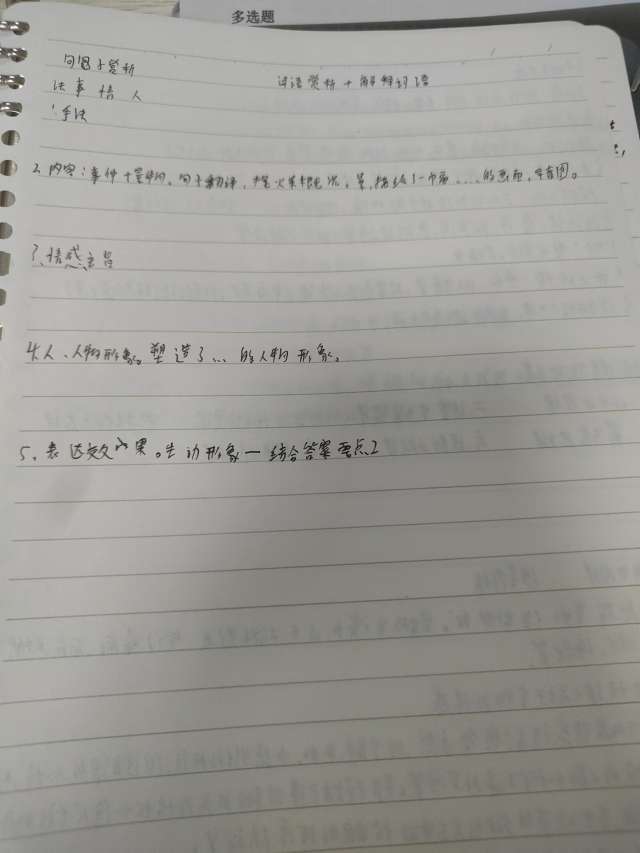 多选题
句子赏析
词语赏析+解释词语
法 事 情 人
1手法
2.内容:事件+景物。句子翻译,描绘了一幅....的画面,
3.情感主旨
4.人、人物形象。塑造了...的人物形象。
5.表达效果。生动形象一结合答案要点2